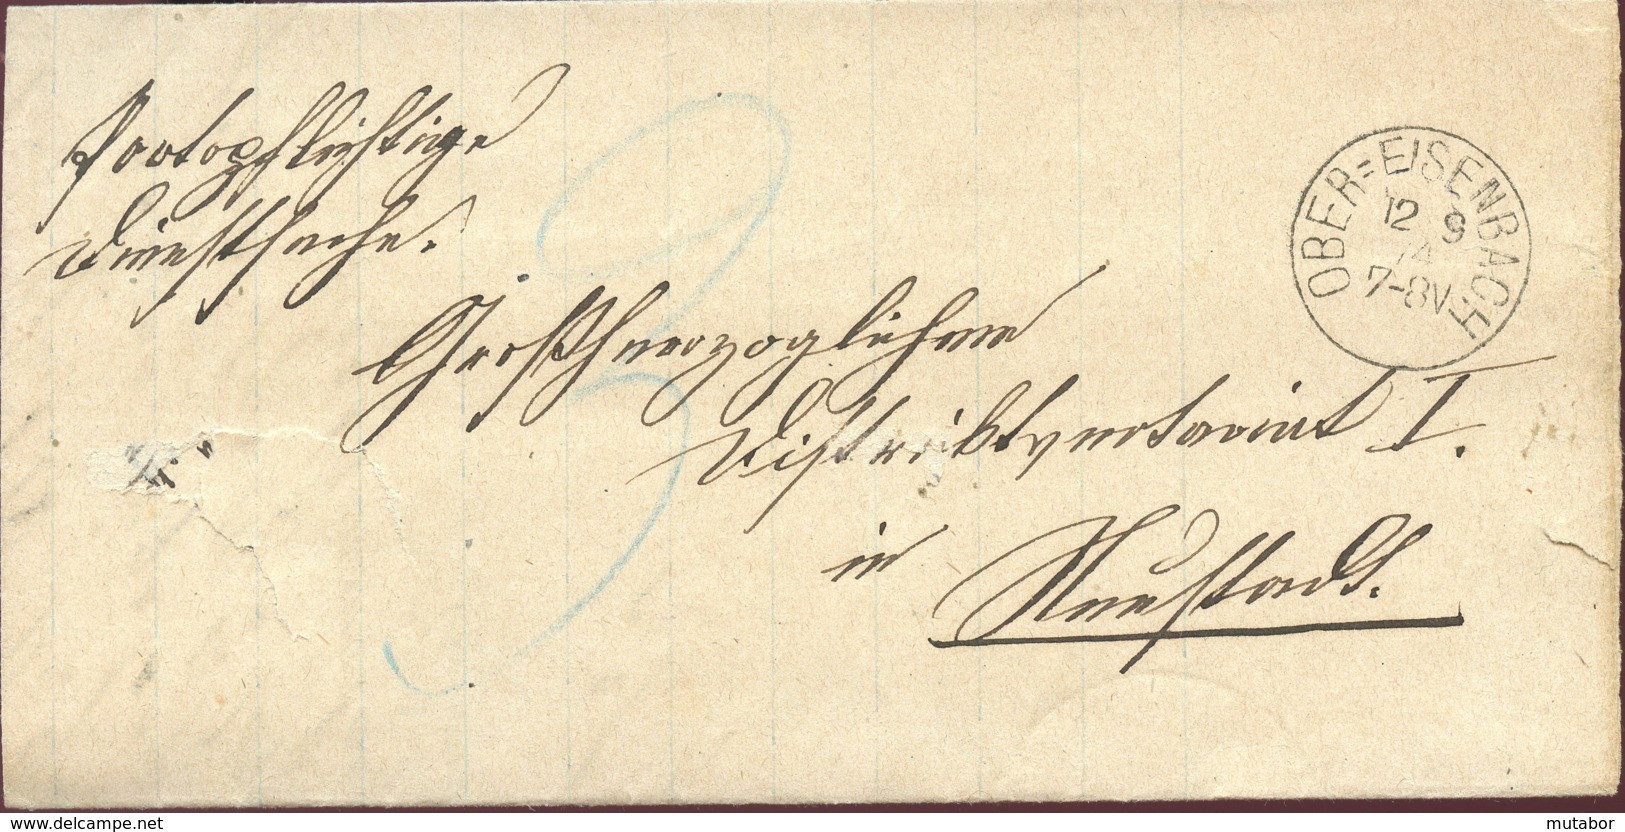 Portopflichtige
Dienstsache.
OBER=EISENBACH
12 9
74
7-8V.
Großherzogliches
Distriktseinnehmerei I.
in Neustadt.
www.delcampe.net
mutabor